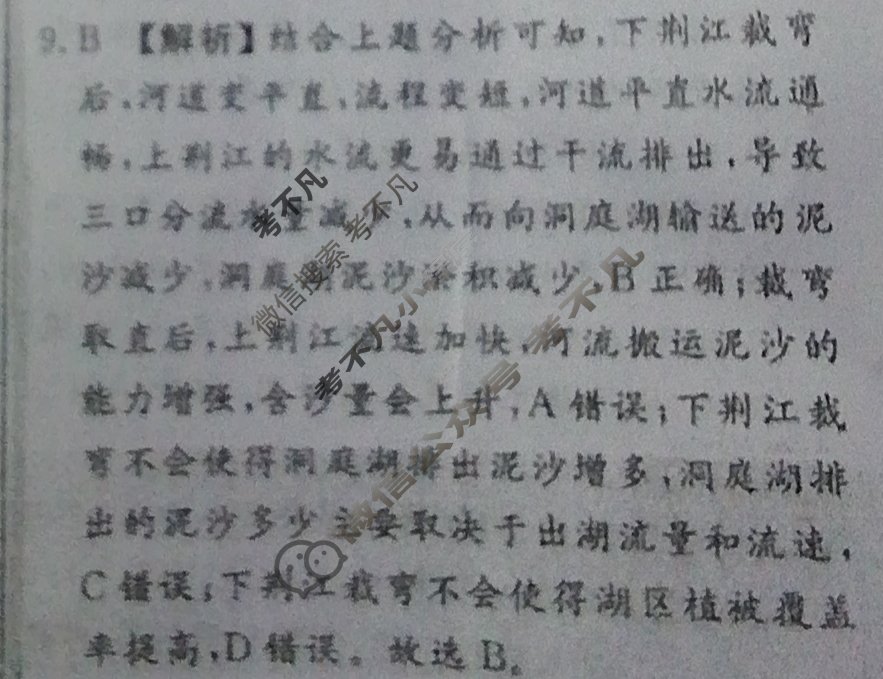 9. B 【解析】结合上题分析可知,下荆江裁弯
后,河道变平直,流程变短,河道平直水流通
畅,上荆江的水流更易通过干流排出,导致
三口分流水量减少,从而向洞庭湖输送的泥
沙减少,洞庭湖泥沙淤积减少,B 正确;裁弯
取直后,上荆江流速加快,河流搬运泥沙的
能力增强,含沙量会上升,A 错误;下荆江裁
弯不会使得洞庭湖排出泥沙增多,洞庭湖排
出的泥沙多少主要取决于出湖流量和流速,
C 错误;下荆江裁弯不会使得湖区植被覆盖
率提高,D 错误。故选 B。
考不凡
微信搜索 考不凡
考不凡小
微信公众号 考不凡